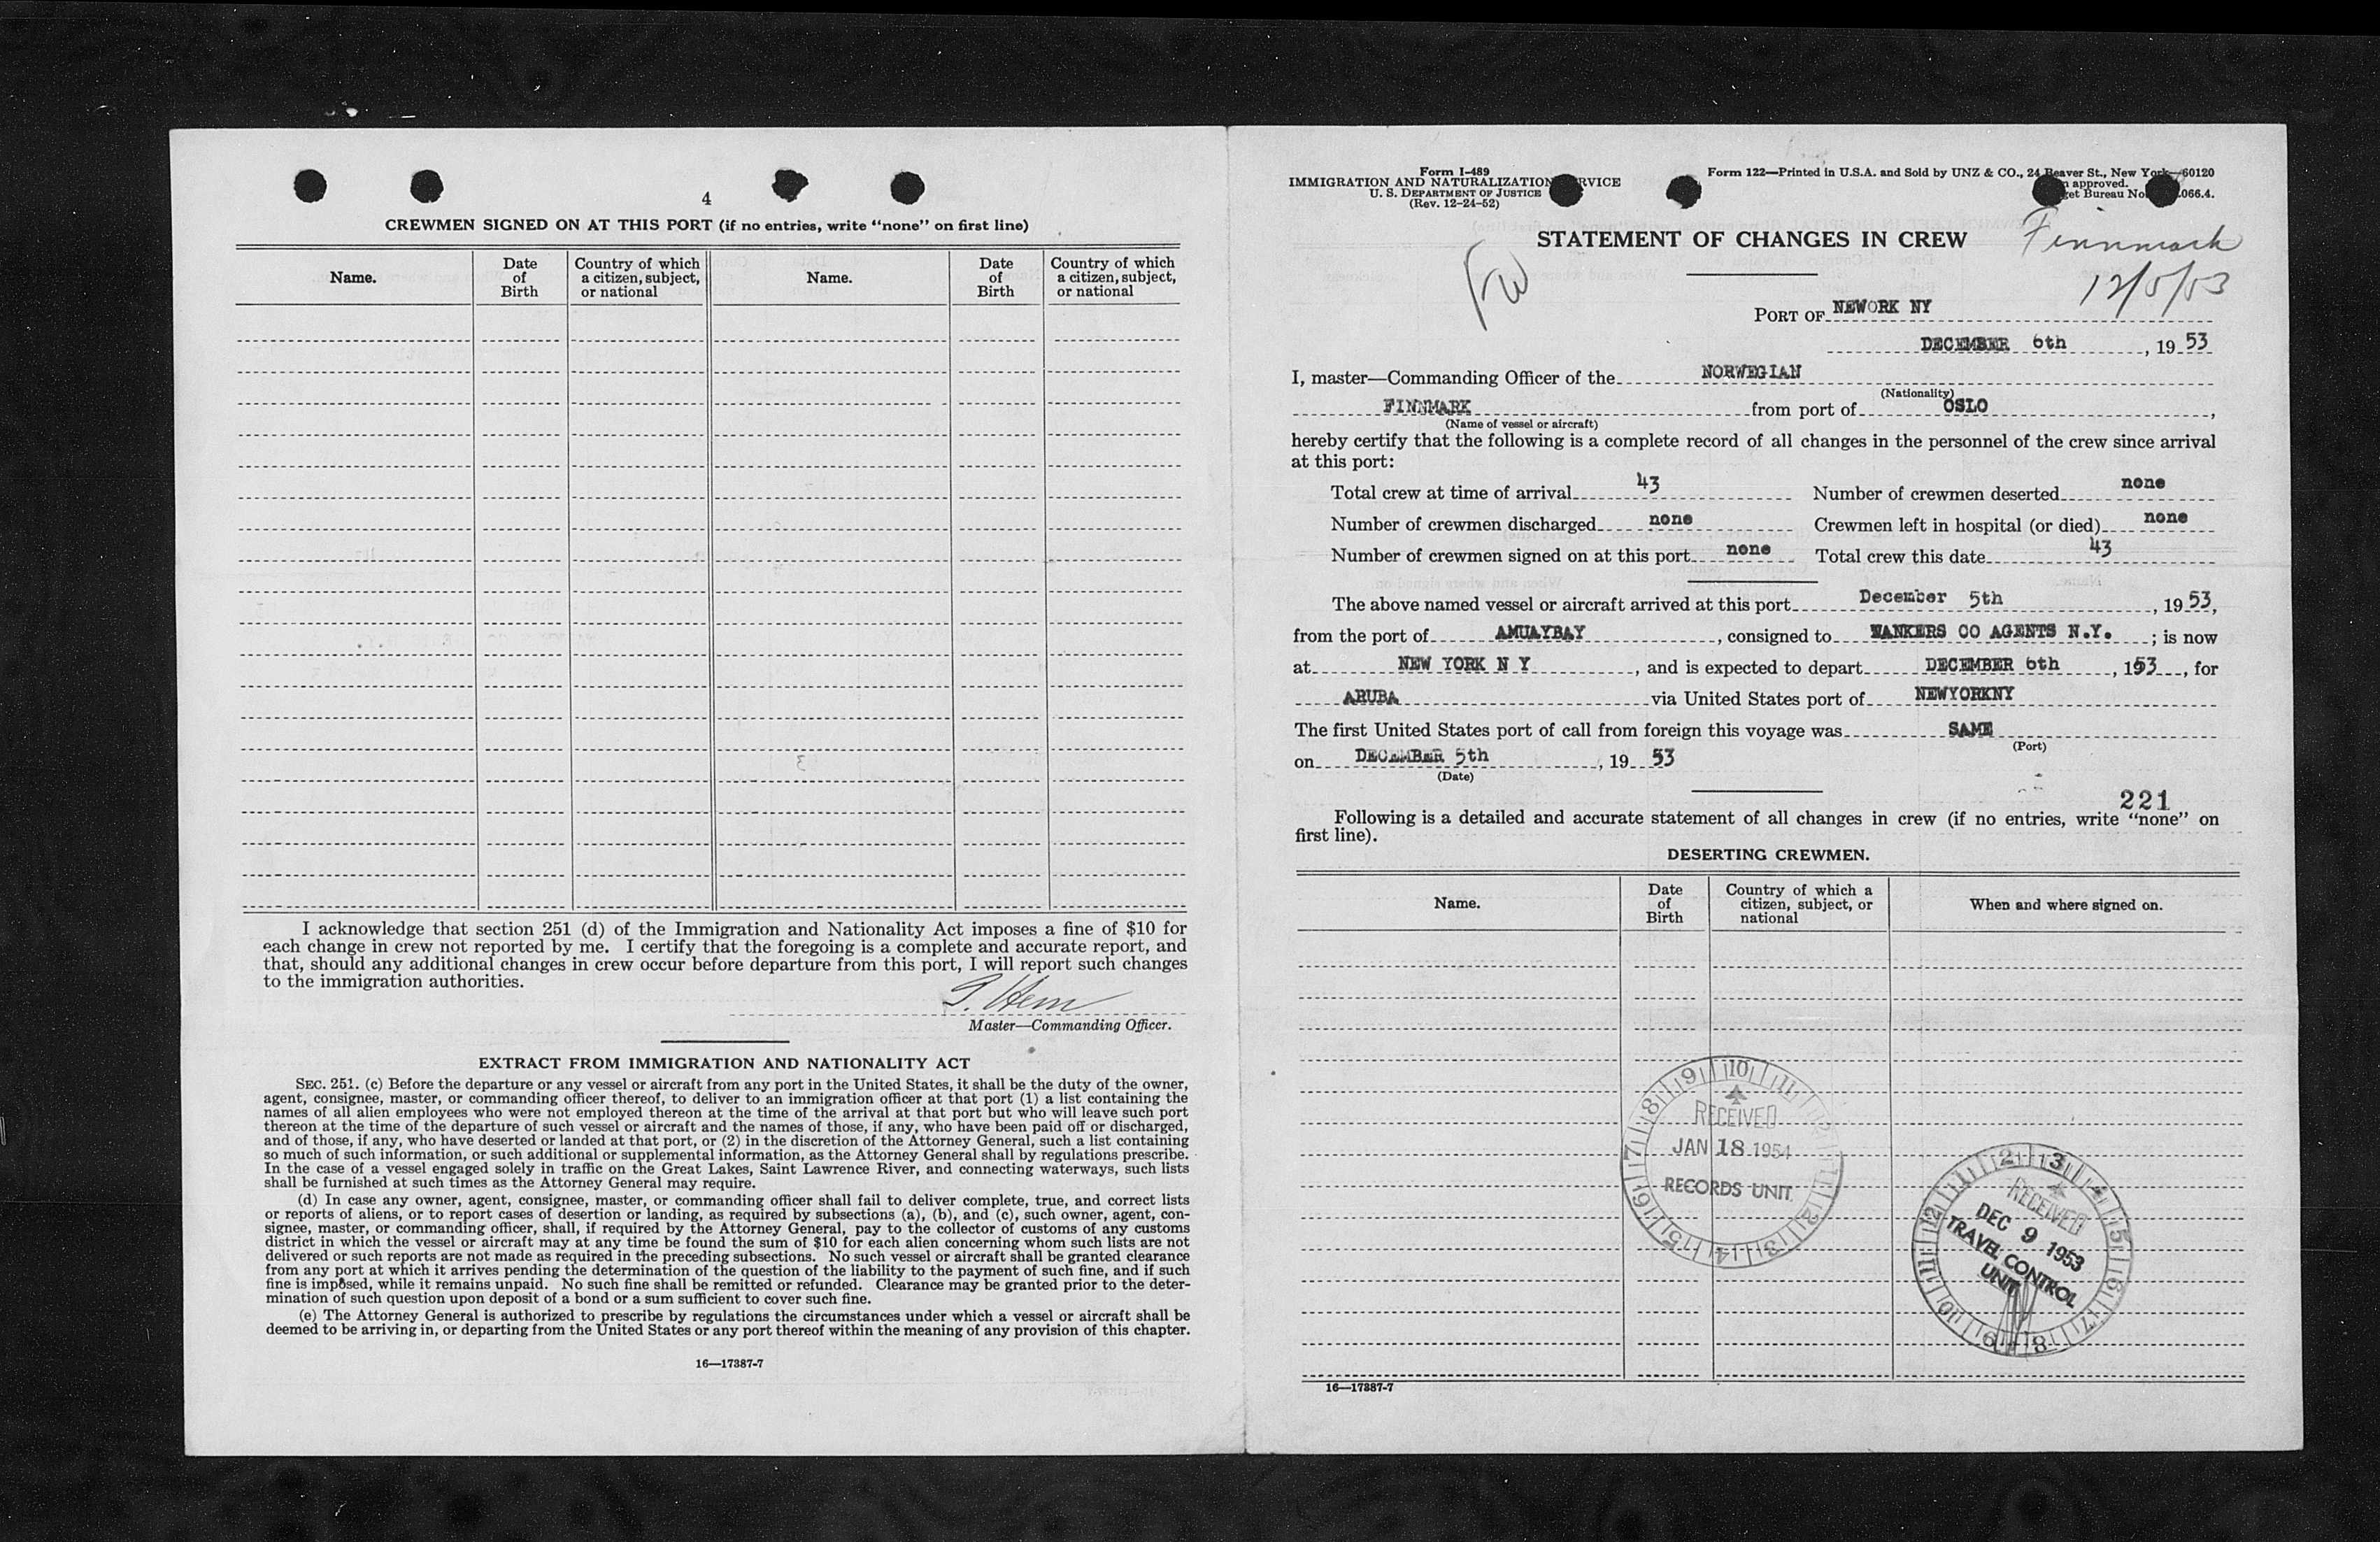 4
CREWMEN SIGNED ON AT THIS PORT (if no entries, write "none" on first line)
Name.
Date of Birth
Country of which a citizen, subject, or national
Name.
Date of Birth
Country of which a citizen, subject, or national
I acknowledge that section 251 (d) of the Immigration and Nationality Act imposes a fine of $10 for
each change in crew not reported by me. I certify that the foregoing is a complete and accurate report, and
that, should any additional changes in crew occur before departure from this port, I will report such changes
to the immigration authorities.
Master—Commanding Officer.
EXTRACT FROM IMMIGRATION AND NATIONALITY ACT
SEC. 251. (c) Before the departure or any vessel or aircraft from any port in the United States, it shall be the duty of the owner,
agent, consignee, master, or commanding officer thereof, to deliver to an immigration officer at that port (1) a list containing the
names of all alien employees who were not employed thereon at the time of the arrival at that port but who will leave such port
thereon at the time of the departure of such vessel or aircraft and the names of those, if any, who have been paid off or discharged,
and of those, if any, who have deserted or landed at that port, or (2) in the discretion of the Attorney General, such a list containing
so much of such information, or such additional or supplemental information, as the Attorney General shall by regulations prescribe.
In the case of a vessel engaged solely in traffic on the Great Lakes, Saint Lawrence River, and connecting waterways, such lists
shall be furnished at such times as the Attorney General may require.
(d) In case any owner, agent, consignee, master, or commanding officer shall fail to deliver complete, true, and correct lists
or reports of aliens, or to report cases of desertion or landing, as required by subsections (a), (b), and (c), such owner, agent, con-
signee, master, or commanding officer, shall, if required by the Attorney General, pay to the collector of customs of any customs
district in which the vessel or aircraft may at any time be found the sum of $10 for each alien concerning whom such lists are not
delivered or such reports are not made as required in the preceding subsections. No such vessel or aircraft shall be granted clearance
from any port at which it arrives pending the determination of the question of the liability to the payment of such fine, and if such
fine is imposed, while it remains unpaid. No such fine shall be remitted or refunded. Clearance may be granted prior to the deter-
mination of such question upon deposit of a bond or a sum sufficient to cover such fine.
(e) The Attorney General is authorized to prescribe by regulations the circumstances under which a vessel or aircraft shall be
deemed to be arriving in, or departing from the United States or any port thereof within the meaning of any provision of this chapter.
16—17387-7
Form I-489
IMMIGRATION AND NATURALIZATION RVICE
U. S. DEPARTMENT OF JUSTICE
(Rev. 12-24-52)
Form 122—Printed in U.S.A. and Sold by UNZ & CO., 24 Beaver St., New York—60120
approved.
et Bureau No. 066.4.
STATEMENT OF CHANGES IN CREW
Finnmark
12/5/53
PORT OF NEWORK NY
DECEMBER 6th, 19 53
I, master—Commanding Officer of the NORWEGIAN
(Nationality)
FINNMARK from port of OSLO,
(Name of vessel or aircraft)
hereby certify that the following is a complete record of all changes in the personnel of the crew since arrival
at this port:
Total crew at time of arrival 43 Number of crewmen deserted none
Number of crewmen discharged none Crewmen left in hospital (or died) none
Number of crewmen signed on at this port none Total crew this date 43
The above named vessel or aircraft arrived at this port December 5th, 19 53,
from the port of AMUAYBAY, consigned to CO AGENTS N.Y. ; is now
at NEW YORK N Y, and is expected to depart DECEMBER 6th, 153, for
ARUBA via United States port of NEWYORKNY
The first United States port of call from foreign this voyage was SAME
(Port)
on DECEMBER 5th, 19 53
(Date)
221
Following is a detailed and accurate statement of all changes in crew (if no entries, write "none" on
first line).
DESERTING CREWMEN.
Name.
Date of Birth
Country of which a citizen, subject, or national
When and where signed on.
RECEIVED
JAN 18 1954
RECORDS UNIT
RECEIVED
DEC 9 1953
TRAVEL CONTROL
UNIT
16—17387-7